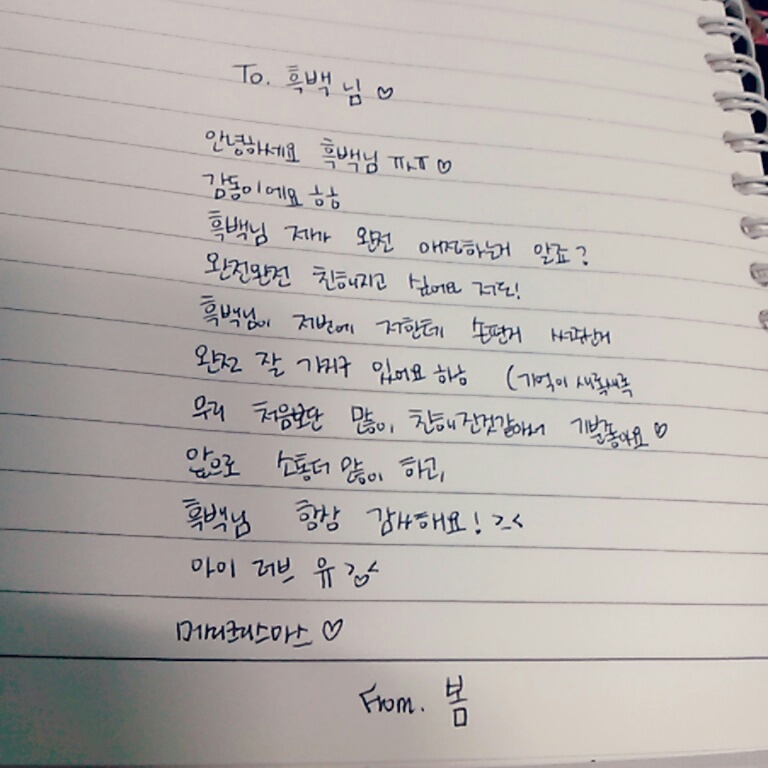 To. 흑백님 ♡
안녕하세요 흑백님 ㅠㅅㅠ ♡
감동이에요 하하
흑백님 제가 완전 애정하는거 알죠?
완전완전 친해지고 싶어요 저도!
흑백님이 저번에 저한테 손편지
완전 잘 가지구 있어요 하하 (기억이 새록새록
우리 처음보단 많이 친해진것같아서 기분좋아요 ♡
앞으로 소통더 많이 하고,
흑백님 항상 감사해요! >.<
아이 러브 유 >.<
메리크리스마스 ♡
From. 봄